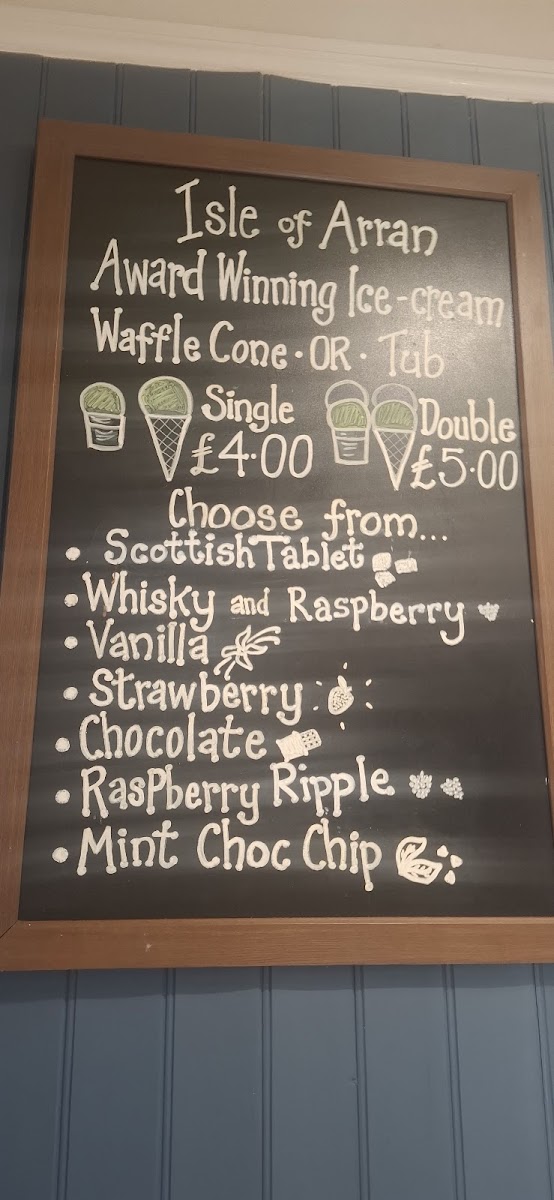 Isle of Arran
Award Winning Ice-cream
Waffle Cone · OR · Tub
Single
£4·00
Double
£5·00
Choose from...
• Scottish Tablet
• Whisky and Raspberry
• Vanilla
• Strawberry
• Chocolate
• Raspberry Ripple
• Mint Choc Chip